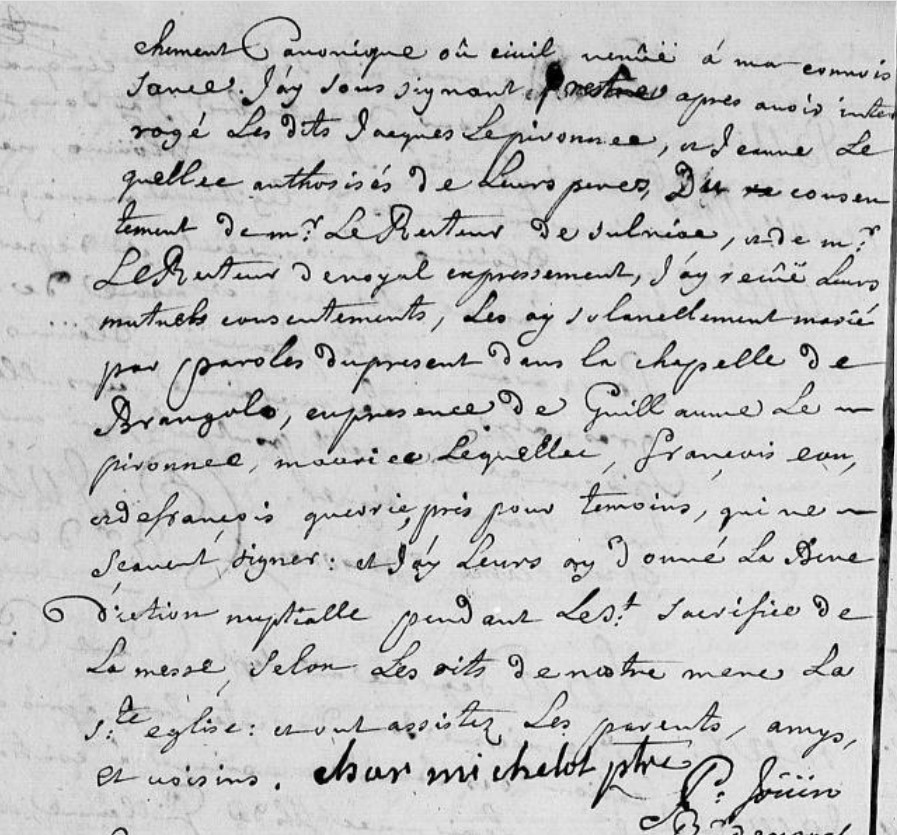 chement Canonique où civil venüe á ma connois
sance. J'ay sous signant prestre apres avoir inter
rogé Les dits Jacques Lepironnec, et Jeanne Le
quellec authorisés de Leurs peres, Du consen
tement de mr. Le Recteur de sulniac, et de mr.
Le Recteur denoyal expressement, J'ay recüe Leurs
mutuels consentements, Les ay solanellement marié
par paroles dupresent dans la chapelle de
Brangolo, enpresence de Guillaume Le
pironnec, maurice Lequellec, françois eon,
etdefrançois guerric, pris pour temoins, qui ne
scavent signer: et J'ay Leurs ay donné La Bene
diction nuptialle pendant Le st. sacrifice de
La messe, selon Les rits de nostre mere La
s.te église: et ont assistez Les parents, amys,
et voisins. michelot ptre
P: Joüin